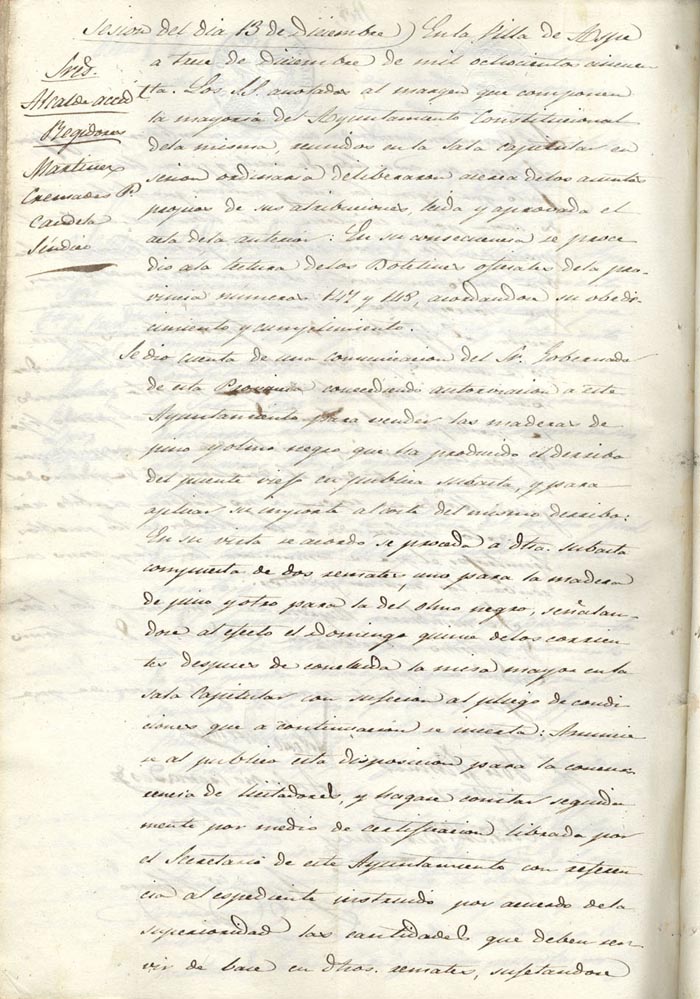 Sesion del dia 13 de Diciembre) En la Villa de Aspe
a trece de diciembre de mil ochocientos cincuen-
ta. Los SS. anotados al margen que componen
la mayoria del Ayuntamiento Constitucional
de la misma, reunidos en la Sala capitular en
sesion ordinaria deliberaron acerca de los asuntos
propios de sus atribuciones, leida y aprovada el
acta de la anterior: En su consecuencia se proce-
dio a la lectura de los Boletines oficiales de la pro-
vincia numeros 147 y 148, acordandose su obede-
cimiento y cumplimiento.
Sres.
Alcalde accidl
Regidores
Martinez
Cremades P.
Candela
Síndico
Se dio cuenta de una comunicacion del Sr. Gobernador
de esta Provincia concediendo autorizacion a este
Ayuntamiento para vender las maderas de
pino y olmo negro que ha producido el derribo
del puente viejo en publica subasta, y para
aplicar su importe al coste del mismo derribo:
En su vista se acordo se proceda a dha. subasta
compuesta de dos remates, uno para la madera
de pino y otro para la del olmo negro, señalan-
dose al efecto el Domingo quince de los corrien-
tes despues de concluida la misa mayor en la
Sala Capitular con sujecion al pliego de condi-
ciones que a continuacion se inserta: Anuncie-
se al publico esta disposicion para la concur-
rencia de licitadores, y hagase constar seguida-
mente por medio de certificacion librada por
el Secretario de este Ayuntamiento con referen-
cia al espediente instruido por acuerdo de la
superioridad las cantidades que deben ser-
vir de base en dhos. remates, sujetandose